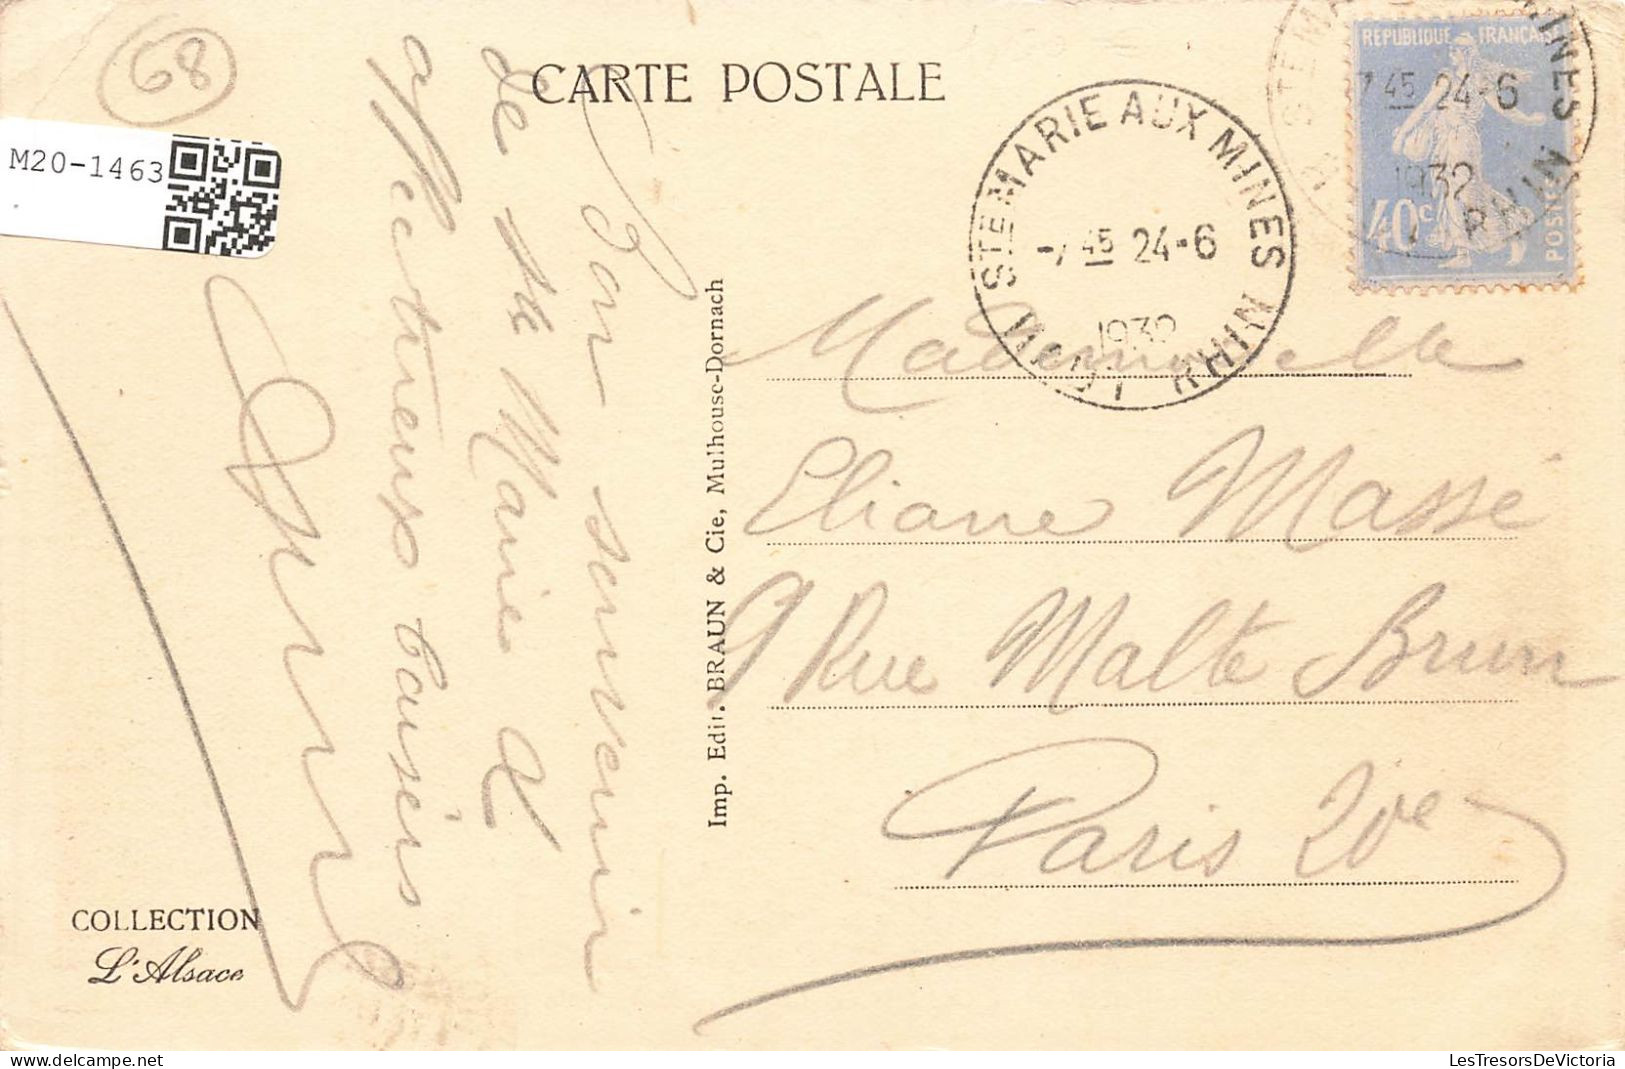 68
M20-1463
CARTE POSTALE
Bon souvenir
de Ste Marie &
affectueux baisers
STE MARIE AUX MINES
7 45 24-6
1932
Ht RHIN
REPUBLIQUE FRANÇAISE
40c
POSTES
STE MARIE AUX MINES
7 45 24-6
1932
Ht RHIN
Mademoiselle
Eliane Massé
9 Rue Malte Brun
Paris 20e
Imp. Edit. BRAUN & Cie, Mulhouse-Dornach
COLLECTION
L'Alsace
LesTresorsDeVictoria